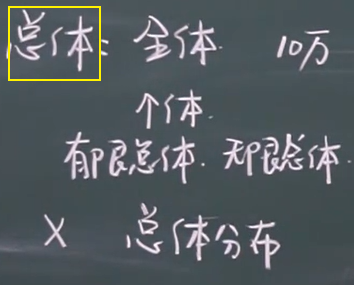 总体: 全体. 10万
个体.
有限总体. 无限总体.
X 总体分布